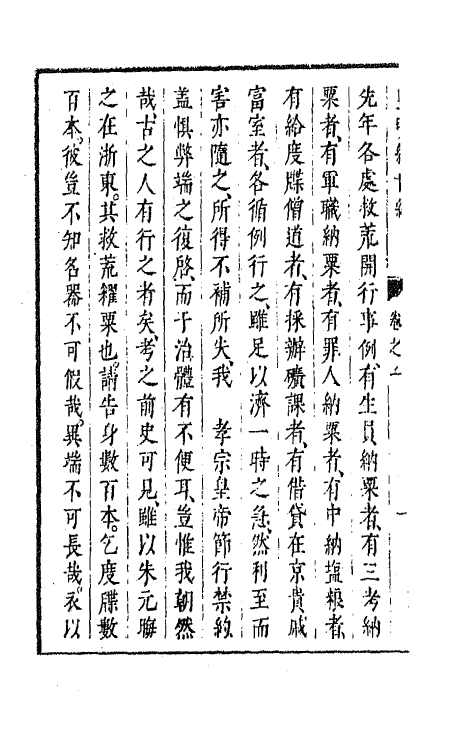 先年各處救荒開行事例有生員納粟者有三考納
粟者有軍職納粟者有罪人納粟者有中納塩粮者
有給度牒僧道者有採辦礦課者有借貸在京貴戚
富室者各循例行之雖足以濟一時之急然利至而
害亦隨之所得不補所失我 孝宗皇帝節行禁約
盖懼弊端之復啓而于治體有不便耳豈惟我朝然
哉古之人有行之者矣考之前史可見雖以朱元晦
之在浙東其救荒糴粟也請告身數百本乞度牒數
百本彼豈不知名器不可假哉異端不可長哉衣以